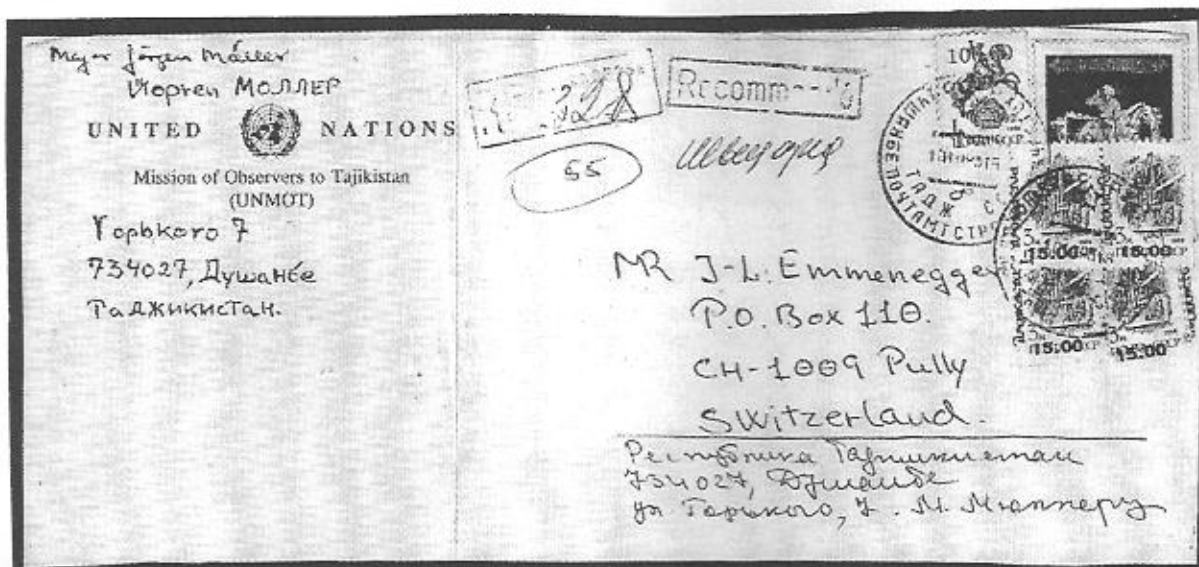 Major Jörgen Möller
Йорген МОЛЛЕР
UNITED NATIONS
Mission of Observers to Tajikistan
(UNMOT)
Горького 7
734027, Душанбе
Таджикистан.
328
Recomm
55
Швейцария
10
ТАДЖ
ПОЧТАМТ
15.00 15.00
15.00 15.00
MR J-L. Emmenegger
P.O. Box 110.
CH-1009 Pully
Switzerland.
Республика Таджикистан
734027, Душанбе
ул Горького, 7. М. Мюллеру